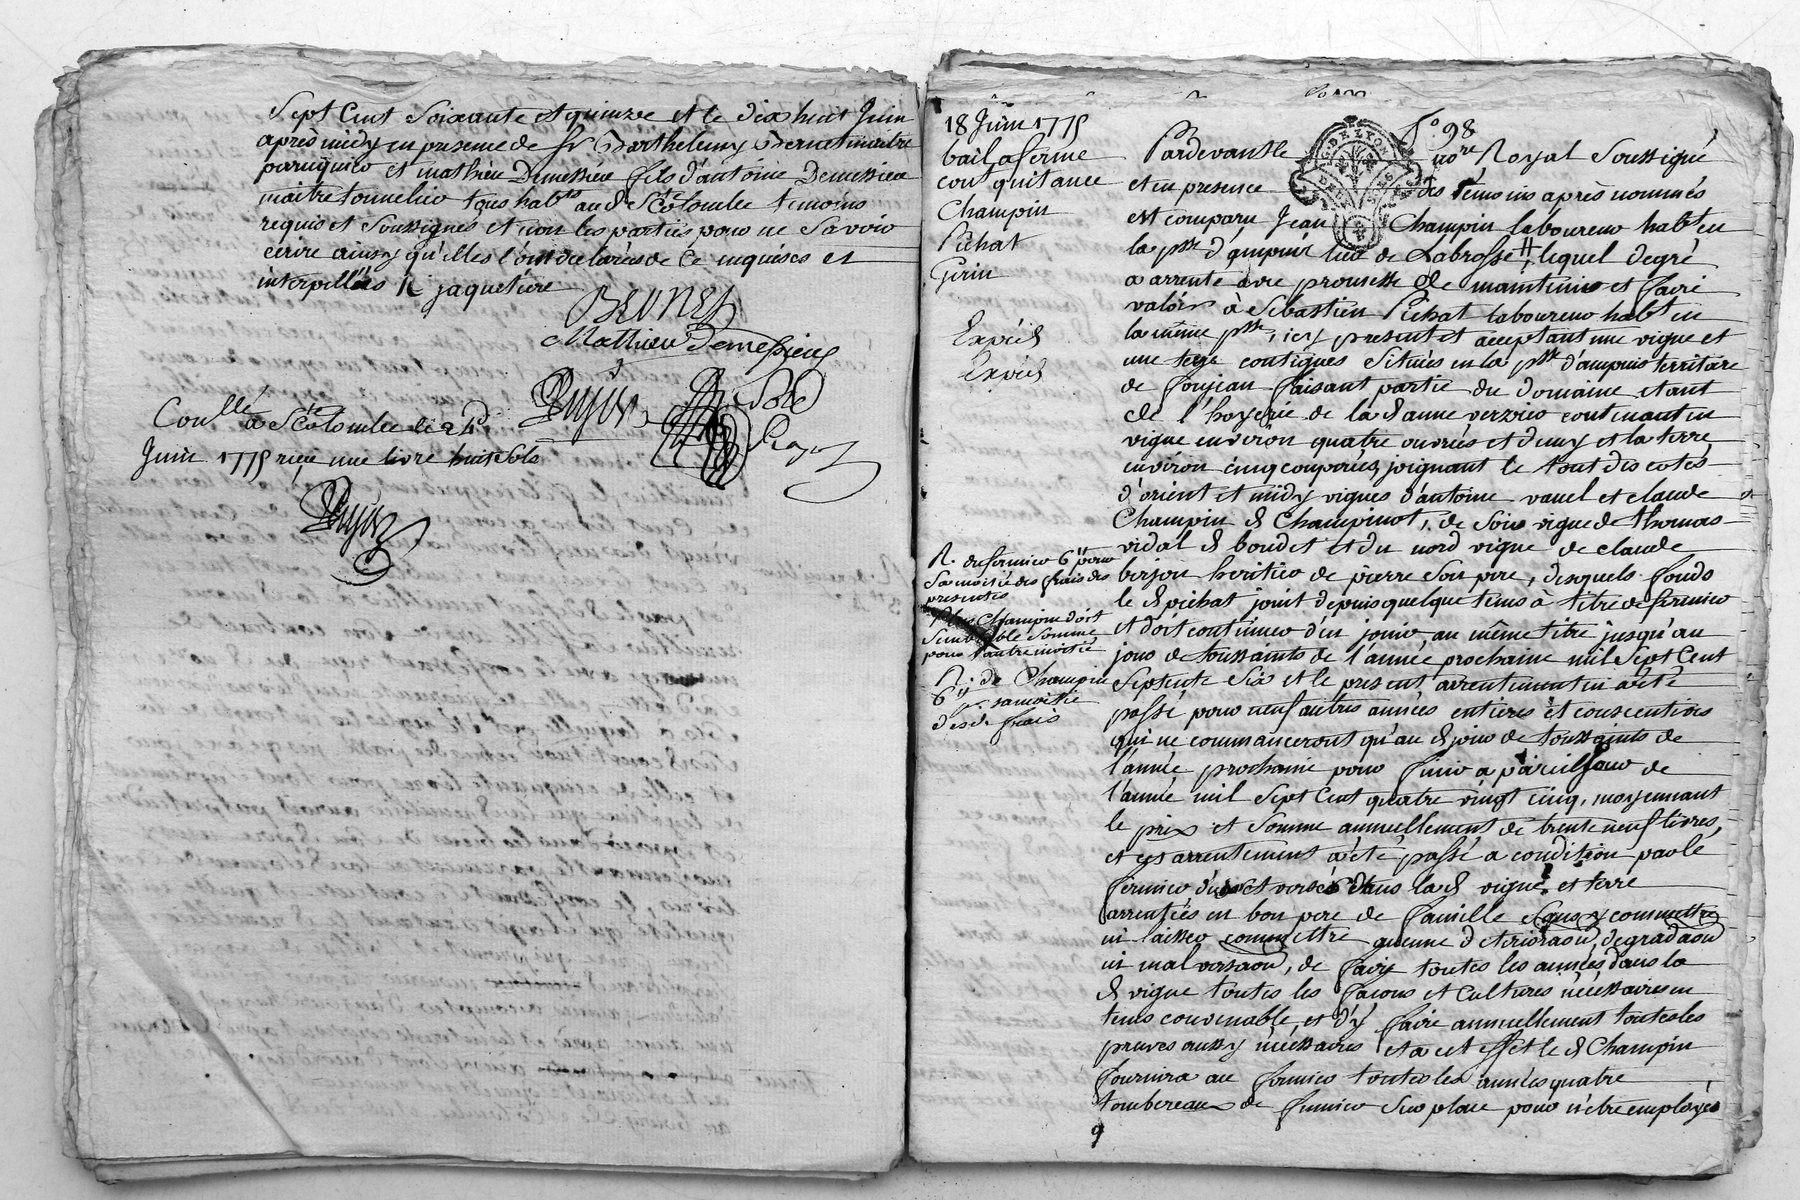 Sept Cent Soixante et quinze et le dix huit Juin
après midy en presence de Sr Barthelemy Bernet maitre
peruquier et mathieu Demessieu fils d'antoine Demessieu
maitre tonnelier tous habts aud Ste Colombe temoins
requis et soussignés et non les parties pour ne savoir
écrire ainsy qu'elles l'ont declarés de ce enquises et
interpellés jaquetiere
BERNET
Mathieu Demessieu
Conllé à Ste Colombe le
Juin 1775 reçu une livre huit sols
18 Juin 1775
bail a ferme
cont quitance
Champin
Pichat
Girin
Expéd
Expéd
R. du fermier 6 ll pour
sa moitié des frais des
presentes
Champin doit
semblable somme
pour l'autre moitié
R. de Champin
6 ll pr sa moitié
desd. frais
fo 98
G. DE LYON
Pardevant le nore Royal soussigné
et en presence des témoins après nommés
est comparu Jean Champin laboureur habt en
la psse d'ampuis lieu de Labrosse, lequel degré
a arrenté avec promesse de maintenir et faire
valoir à Sébastien Pichat laboureur habt en
la même psse, icy present et acceptant une vigne et
une terre contigues situés en la psse d'ampuis territoire
de foujean faisant partie du domaine étant
de l'hoyerie de lad anne verzier contenant en
vigne environ quatre ouvrées et demy et la terre
environ cinq couperées, joignant le tout des cotés
d'orient et midy vignes d'antoine vanel et claude
Champin d Champinot, de soir vigne de thomas
vidal d boudet et du nord vigne de claude
berjon heritier de pierre son pere, desquels fonds
le d pichat jouit depuis quelque tems à titre de fermier
et doit continuer d'en jouir au même titre jusqu'au
jour de toussaints de l'année prochaine mil sept cent
septente six et le present arrentement en a été
passé pour neuf autres années entieres et consecutives
qui ne commanceront qu'au d jour de toussaints de
l'année prochaine pour finir a pareil jour de
l'année mil sept cent quatre vingt cinq, moyennant
le prix et somme annuellement de trente neuf livres,
et cet arrentement a été passé a condition par le
fermier d'user et verser dans lad vigne et terre
arrentées en bon pere de famille sans y commettre
ni laisser commettre aucune deterioraon, degradaon
ni malversaon, de faire toutes les années dans la
d vigne toutes les façons et cultures nécessaires en
tems convenable, et d'y faire annuellement toutes les
preuves aussy nécessaires et a cet effet le d Champin
fournira au fermier toutes les années quatre
tombereaux de fumier sur place pour n'etre employés